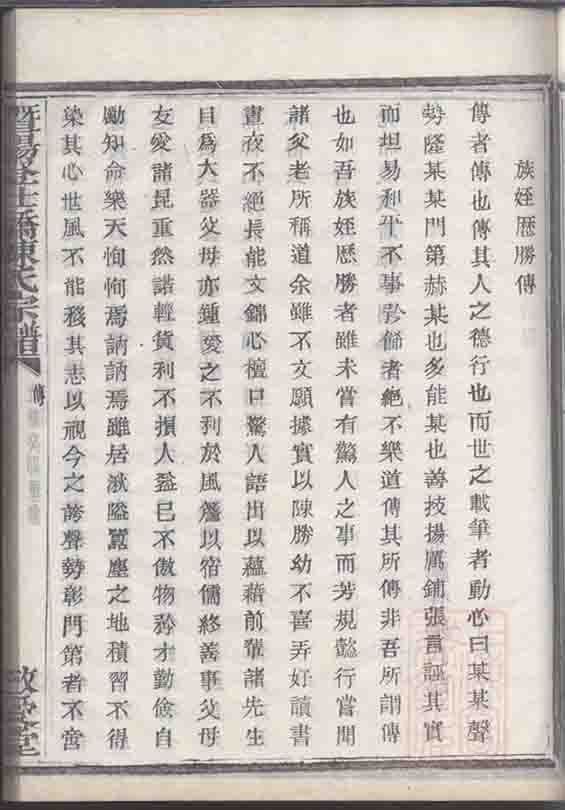 族姪歷勝傳
傳者傳也傳其人之德行也而世之載筆者動必曰某某聲
勢隆某某門第赫某也多能某也善技揚厲鋪張言誣其實
而坦易和平不事矜飾者絕不樂道傳其所傳非吾所謂傳
也如吾族姪歷勝者雖未嘗有驚人之事而芳規懿行嘗聞
諸父老所稱道余雖不文願據實以陳勝幼不喜弄好讀書
晝夜不絕長能文錦心檀口驚人語出以蘊藉前輩諸先生
目為大器父母亦鍾愛之不利於風簷以宿儒終善事父母
友愛諸昆重然諾輕貨利不損人益己不傲物矜才勤儉自
勵知命樂天恂恂焉訥訥焉雖居湫隘囂塵之地積習不得
染其心世風不能移其志以視今之誇聲勢彰門第者不啻
暨陽 橋陳氏宗譜
傳